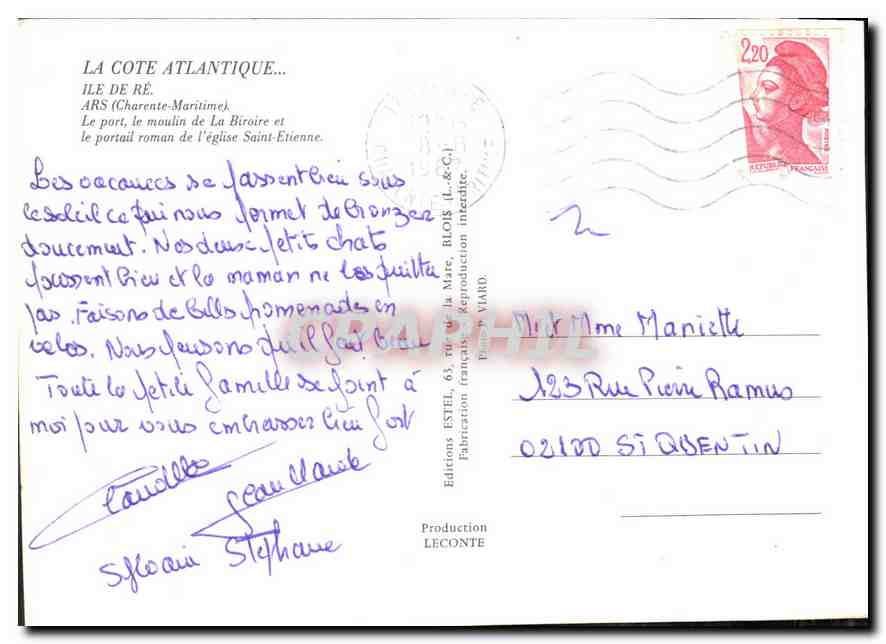 LA COTE ATLANTIQUE...
ILE DE RÉ.
ARS (Charente-Maritime).
Le port, le moulin de La Biroire et
le portail roman de l'église Saint-Etienne.
Les vacances se passent bien sous
le soleil ce qui nous permet de bronzer
doucement. Nos deux petits chats
poussent bien et la maman ne les quitte
pas. Faisons de belles promenades en
velos. Nous pensons qu'il fait beau
Toute la petite famille se joint à
moi pour vous embrasser bien fort
Claudette
Jean Claude
Sylvain Stéphane
Editions ESTEL, 63, rue de la Mare, BLOIS (L.-&-C.)
Fabrication française - Reproduction interdite.
Photo P. VIARD.
Production
LECONTE
2,20
REPUBLIQUE FRANÇAISE
M et Mme Mariette
123 Rue Pierre Ramus
02100 St QUENTIN
CPAPHIL